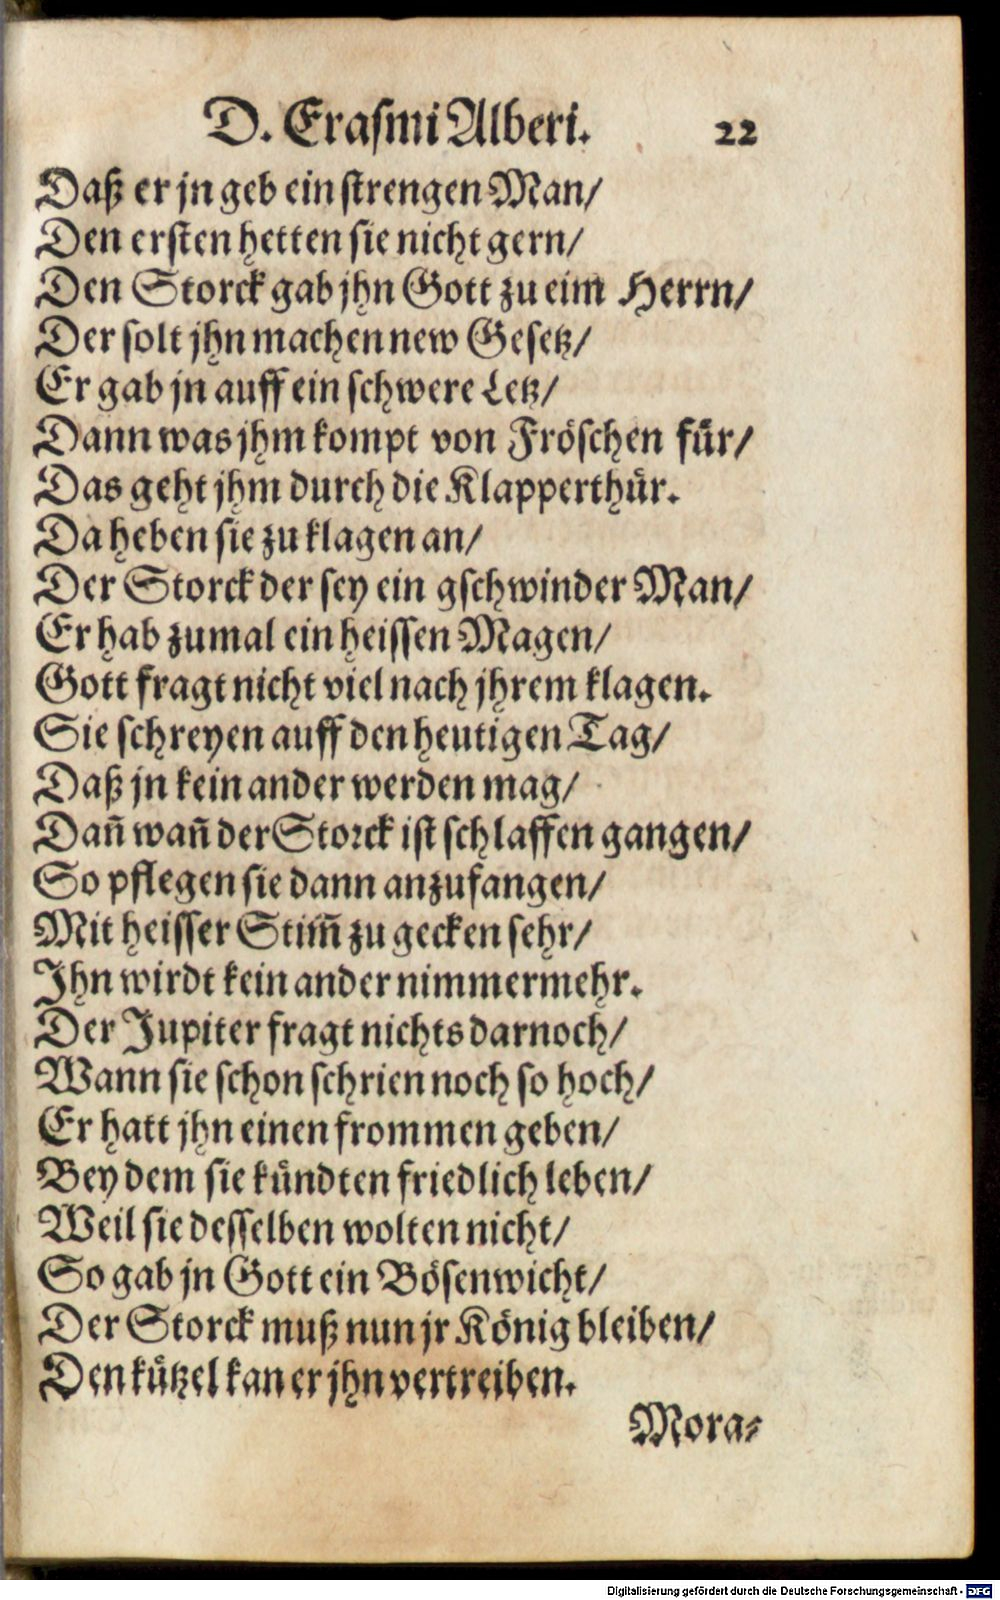 D. Erasmi Alberi. 22
Daß er jn geb ein strengen Man/
Den ersten hetten sie nicht gern/
Den Storck gab jhn Gott zu eim Herrn/
Der solt jhn machen new Gesetz/
Er gab jn auff ein schwere Letz/
Dann was jhm kompt von Fröschen für/
Das geht jhm durch die Klapperthür.
Da heben sie zu klagen an/
Der Storck der sey ein gschwinder Man/
Er hab zumal ein heissen Magen/
Gott fragt nicht viel nach jhrem klagen.
Sie schreyen auff den heutigen Tag/
Daß jn kein ander werden mag/
Dañ wañ der Storck ist schlaffen gangen/
So pflegen sie dann anzufangen/
Mit heisser Stim̃ zu gecken sehr/
Ihn wirdt kein ander nimmermehr.
Der Jupiter fragt nichts darnoch/
Wann sie schon schrien noch so hoch/
Er hatt jhn einen frommen geben/
Bey dem sie kündten friedlich leben/
Weil sie desselben wolten nicht/
So gab jn Gott ein Bösenwicht/
Der Storck muß nun jr König bleiben/
Den kützel kan er jhn vertreiben.
Mora-
Digitalisierung gefördert durch die Deutsche Forschungsgemeinschaft - DFG